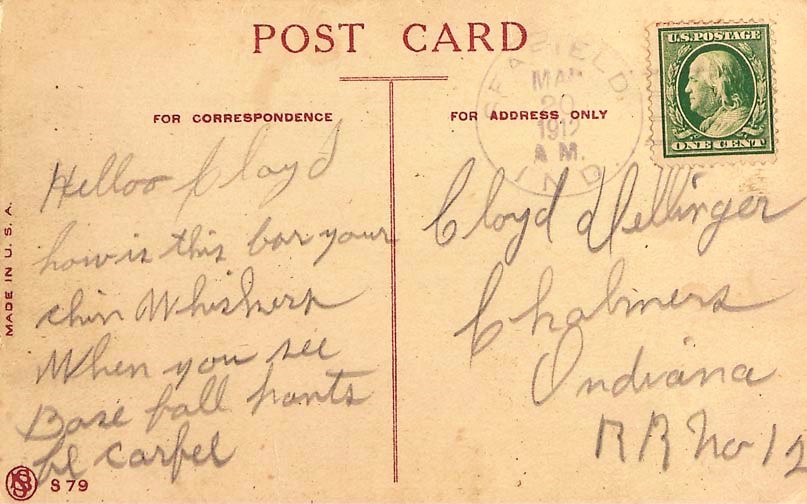 POST CARD
FOR CORRESPONDENCE
FOR ADDRESS ONLY
SEAFIELD,
MAR
20
1912
A M.
IND.
U.S. POSTAGE
ONE CENT
MADE IN U. S. A.
Helloo Cloyd
how is this bor your
chin Whiskers
When you see
Base ball pants
be carfel
S 79
Cloyd Dellinger
Chalmers
Indiana
R R No 12